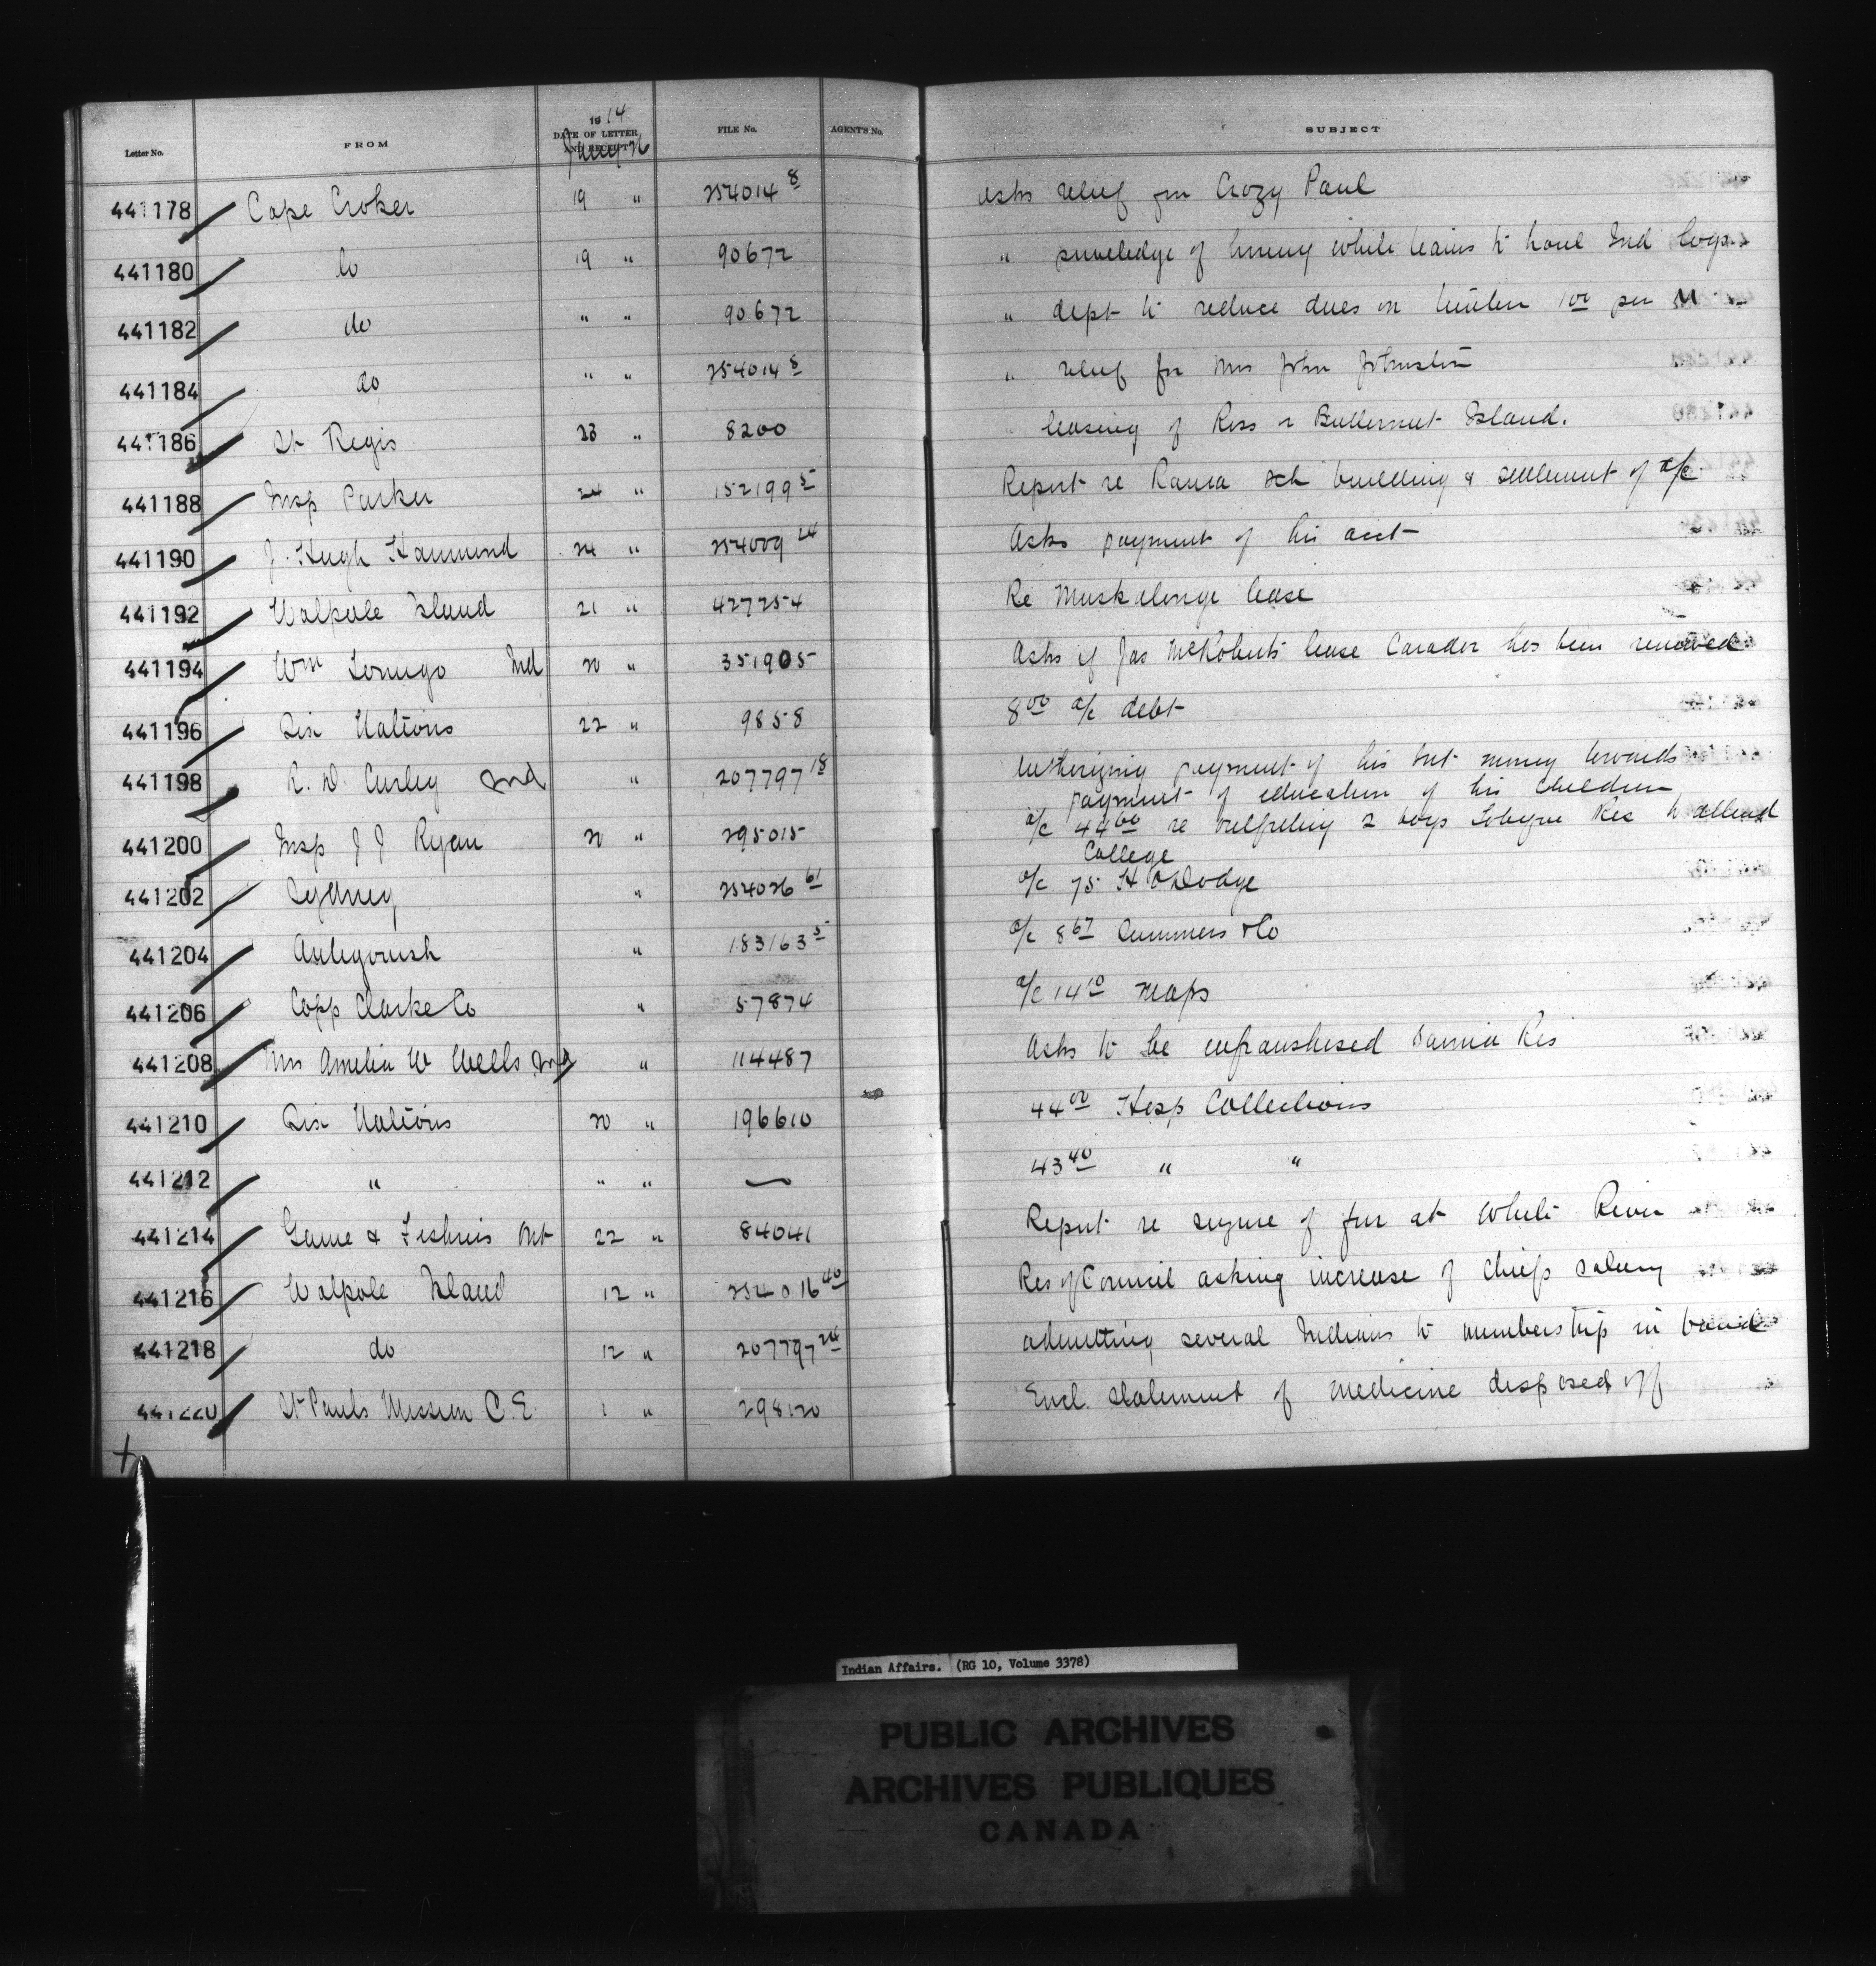 Letter No. FROM 1914 DATE OF LETTER AND RECEIPT Jany 26 FILE No. AGENT'S No. SUBJECT
441178 Cape Croker 19 " 254014 8 Asks relief for Crazy Paul
441180 do 19 " 90672 " priveledge of hiring white teams to haul Ind logs
441182 do " " 90672 " dept to reduce dues on timber 1 00 per M
441184 do " " 254014 8 " relief for Mrs John Johnston
441186 St Regis 23 " 8200 leasing of Ross & Butternut Island.
441188 Insp Parker 24 " 152199 5 Report re Rama sch building & settlement of a/c
441190 J. Hugh Hammond 24 " 254009 24 Asks payment of his acct
441192 Walpole Island 21 " 427254 Re Muskalonge lease
441194 Wm Ind 20 " 351905 Asks if Jas McRoberts lease Carador has been renewed
441196 Six Nations 22 " 9858 8 00 a/c debt
441198 R. D. Curley Ind " 207797 18 Authorizing payment of his Int money towards
payment of education of his children
441200 Insp J J Ryan 20 " 295015 a/c 44 60 re outfitting 2 boys Tobique Res to attend
College
441202 Sydney " 254026 61 a/c 75 H Dodge
441204 Antigonish " 183163 5 a/c 8 67 Summers & Co
441206 Copp Clarke Co " 57874 a/c 14 10 maps
441208 Mrs Amelia W Wells Ind " 114487 Asks to be enfranshised Sarnia Res
441210 Six Nations 20 " 196610 44 00 Hosp Collections
441212 " " " — 43 40 " "
441214 Game & Fisheries Ont 22 " 84041 Report re seizure of fur at White River
441216 Walpole Island 12 " 254016 40 Res of Council asking increase of Chiefs salary
441218 do 12 " 207797 24 admitting several Indians to membership in band
441220 St Pauls Mission C.E. 1 " 298120 Encl. statement of medicine disposed off
Indian Affairs. (RG 10, Volume 3378)
PUBLIC ARCHIVES
ARCHIVES PUBLIQUES
CANADA